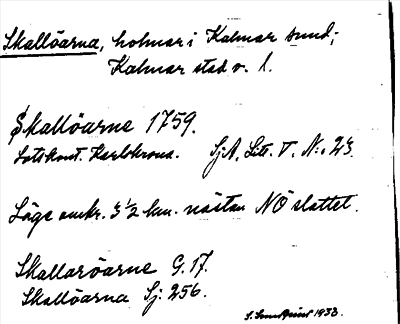 Skallöarna, holmar i Kalmar sund;
Kalmar stad o. l.
Skallöarne 1759.
Lotskont. Karlskrona. SjA, Litt. T. No. 23.
Läge omkr. 3 1/2 km. nästan NÖ slottet.
Skallaröarne G. 17.
Skallöarna Sj: 256.
1933.